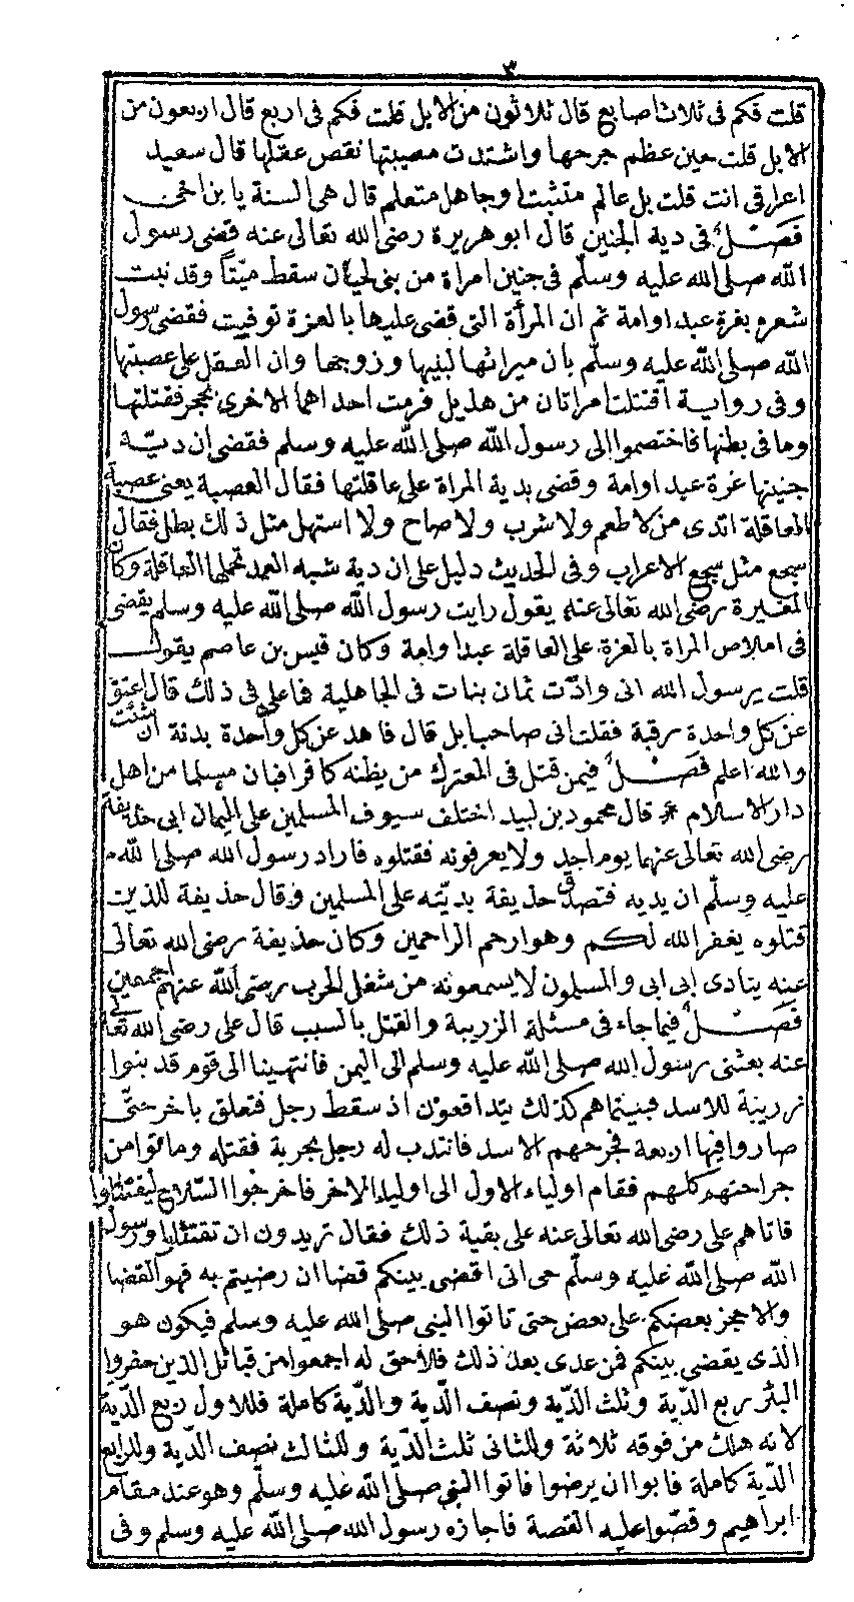 ٣
قلت فكم فى ثلاث اصابع قال ثلاثون من الابل قلت فكم فى اربع قال اربعون من
الابل قلت حين عظم جرحها واشتدت مصيبتها نقص عقلها قال سعيد
اعراقى انت قلت بل عالم متثبت او جاهل متعلم قال هى السنة يا بن اخى
فصل فى دية الجنين قال ابو هريرة رضى الله تعالى عنه قضى رسول
الله صلى الله عليه وسلم فى جنين امراة من بنى لحيان سقط ميتا وقد نبت
شعره بغرة عبد او امة ثم ان المرأة التى قضى عليها بالغرة توفيت فقضى رسول
الله صلى الله عليه وسلم بان ميراثها لبنيها وزوجها وان العقل على عصبتها
وفى رواية اقتتلت امراتان من هذيل فرمت احداهما الاخرى بحجر فقتلتها
وما فى بطنها فاختصموا الى رسول الله صلى الله عليه وسلم فقضى ان دية
جنينها غرة عبد او امة وقضى بدية المراة على عاقلتها فقال العصبة يعنى عصبة
العاقلة اتدى من لا طعم ولا شرب ولا صاح ولا استهل مثل ذلك بطل فقال
سجع مثل سجع الاعراب وفى الحديث دليل على ان دية شبه العمد تحملها العاقلة وكان
المغيرة رضى الله تعالى عنه يقول رايت رسول الله صلى الله عليه وسلم يقضى
فى املاص المراة بالغرة على العاقلة عبدا وامة وكان قيس بن عاصم يقول
قلت يرسول الله انى وادت ثمان بنات فى الجاهلية فما على فى ذلك قال اعتق
عن كل واحدة رقبة فقلت انى صاحب ابل قال فاهد عن كل واحدة بدنة ان شئت
والله اعلم فصل فيمن قتل فى المعترك من يظنه كافرا فبان مسلما من اهل
دار الاسلام * قال محمود بن لبيد اختلف سيوف المسلمين على اليمان ابى حذيفة
رضى الله تعالى عنهما يوم احد ولا يعرفونه فقتلوه فاراد رسول الله صلى الله
عليه وسلم ان يديه فتصدق حذيفة بديته على المسلمين وقال حذيفة للذين
قتلوه يغفر الله لكم وهو ارحم الراحمين وكان حذيفة رضى الله تعالى
عنه ينادى ابى ابى والمسلمون لا يسمعونه من شغل الحرب رضى الله عنهم اجمعين
فصل فيما جاء فى مسئلة الزريبة والقتل بالسبب قال على رضى الله تعالى
عنه بعثنى رسول الله صلى الله عليه وسلم الى اليمن فانتهينا الى قوم قد بنوا
زريبة للاسد فبينما هم كذلك يتدافعون اذ سقط رجل فتعلق باخر حتى
صاروا فيها اربعة فجرحهم الاسد فانتدب له رجل بحربة فقتله وماتوا من
جراحتهم كلهم فقام اولياء الاول الى اولياء الاخر فاخرجوا السلاح ليقتتلوا
فاتاهم على رضى الله تعالى عنه على بقية ذلك فقال تريدون ان تقتتلوا ورسول
الله صلى الله عليه وسلم حى انى اقضى بينكم قضا ان رضيتم به فهو القضا
والا حجز بعضكم على بعض حتى تاتوا النبى صلى الله عليه وسلم فيكون هو
الذى يقضى بينكم فمن عدى بعد ذلك فلا حق له اجمعوا من قبائل الذين حفروا
البئر ربع الدية وثلث الدية ونصف الدية والدية كاملة فللاول ربع الدية
لانه هلك من فوقه ثلاثة وللثانى ثلث الدية وللثالث نصف الدية وللرابع
الدية كاملة فابوا ان يرضوا فاتوا النبى صلى الله عليه وسلم وهو عند مقام
ابراهيم وقصوا عليه القصة فاجازه رسول الله صلى الله عليه وسلم وفى